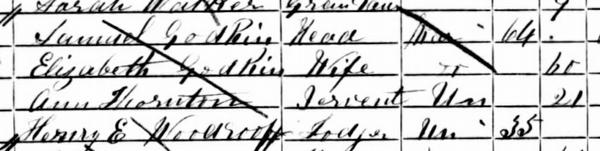 Sarah Walker Grand Dau 9
Samuel Godkin Head Mar 64
Elizabeth Godkin Wife Do 60
Ann Thornton Servent Un 21
Henry E Woodroof Lodger Un 35